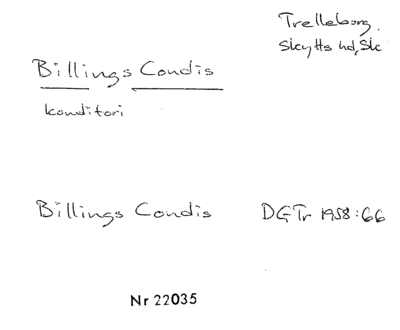 Trelleborg.
Skytts hd, Sk
Billings Condis
konditori
Billings Condis DGTr 1958:66
Nr 22035